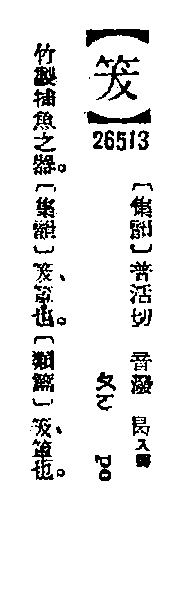 【笅】
26513
〔集韻〕普活切 音潑 曷入聲
ㄆㄛ po
竹製捕魚之器。〔集韻〕笅、罩也。〔類篇〕笅、罩也。